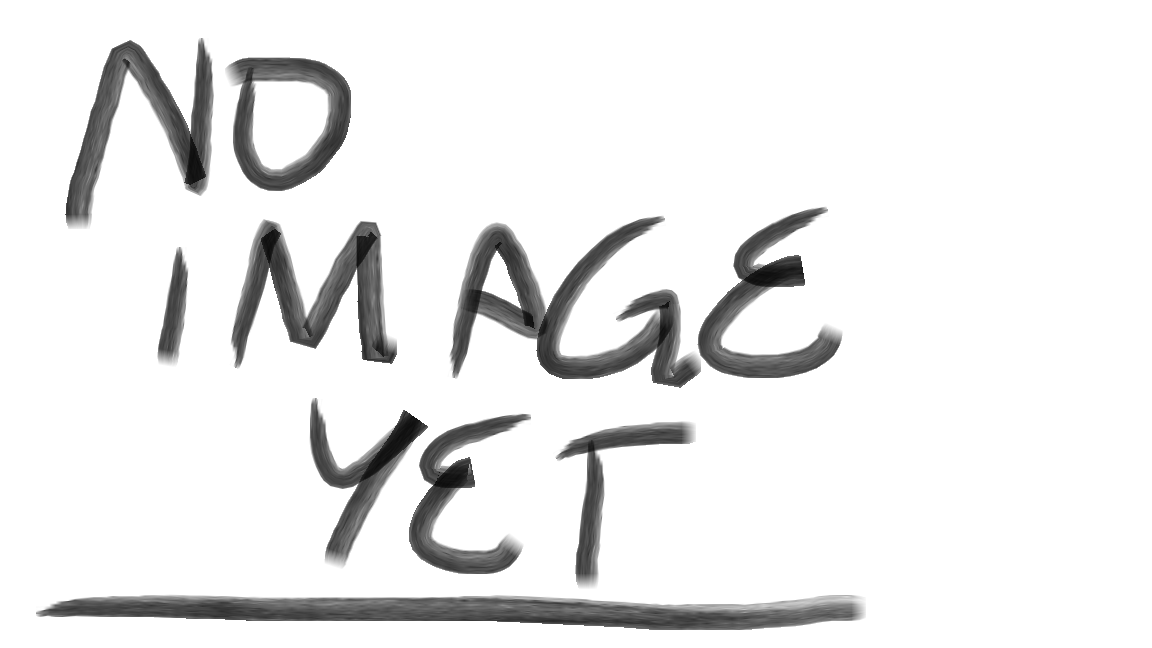 NO
IMAGE
YET